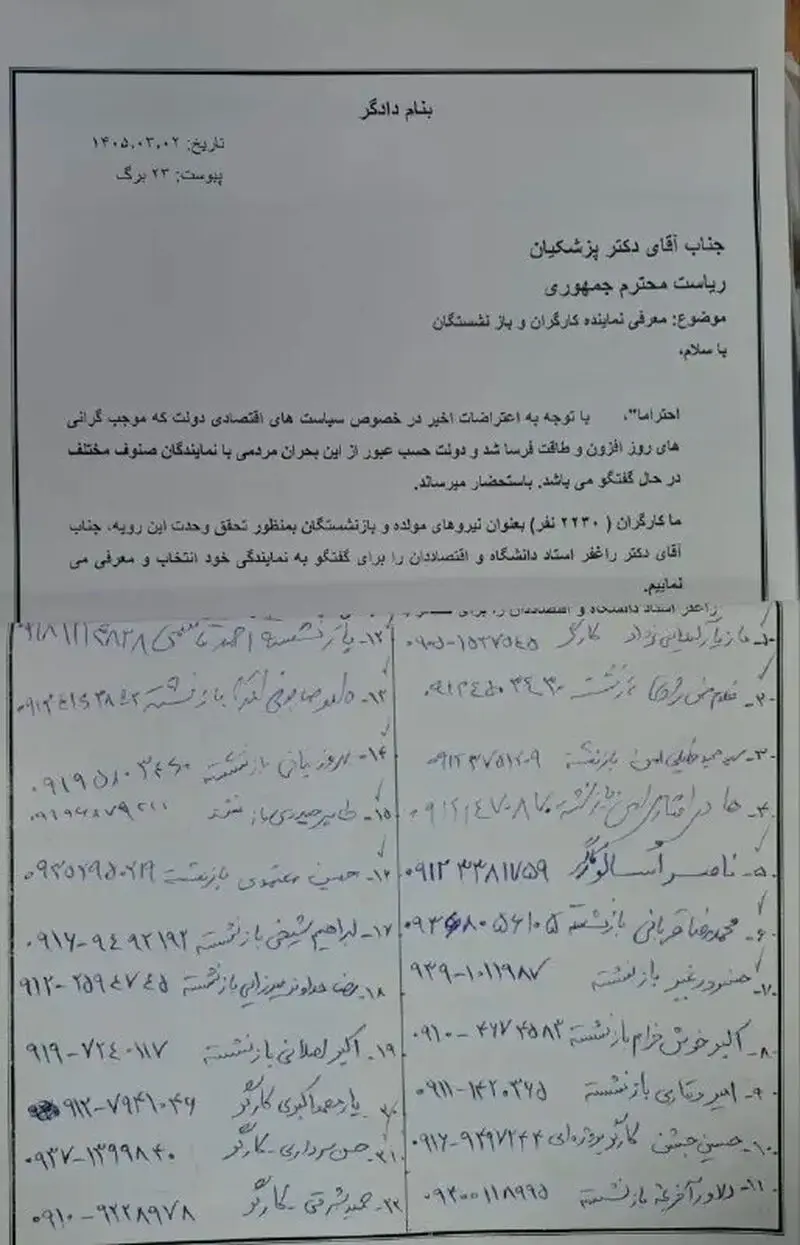 بنام دادگر
تاریخ: ۱۴۰۵،۰۳،۰۲
پیوست: ۲۳ برگ
جناب آقای دکتر پزشکیان
ریاست محترم جمهوری
موضوع: معرفی نماینده کارگران و باز نشستگان
با سلام،
احتراما"، با توجه به اعتراضات اخیر در خصوص سیاست های اقتصادی دولت که موجب گرانی
های روز افزون و طاقت فرسا شد و دولت حسب عبور از این بحران مردمی با نمایندگان صنوف مختلف
در حال گفتگو می باشد. باستحضار میرساند.
ما کارگران ( ۲۲۳۰ نفر) بعنوان نیروهای مولده و بازنشستگان بمنظور تحقق وحدت این رویه، جناب
آقای دکتر راغفر استاد دانشگاه و اقتصاددان را برای گفتگو به نمایندگی خود انتخاب و معرفی می
نماییم.
راغفر استاد دانشگاه و اقتصاددان را برای
۱- کارگر ۰۹۰۵-۱۵۲۷۵۴۵
۲- بازنشسته
۳- سید بازنشسته
۴- بازنشسته
۵- ناصر آسالو کارگر ۰۹۱۲ ۳۳۸۱۷۵۹
۶- محمدرضا قربانی بازنشسته
۷- بازنشسته ۹۳۹-۱۰۱۱۹۸۷
۸- اکبر خوش خرام بازنشسته ۰۹۱۰-۴۶۷۴۵۸۳
۹- امیر وقاری بازنشسته ۰۹۱۱-۱۴۲۰۳۶۵
۱۰- حسین کارگر پروژه‌ای ۰۹۱۶-۹۴۹۷۲۴۴
۱۱- دلاور بازنشسته ۰۹۳۰۰۱۱۸۹۹۵
۱۲- بازنشسته احمد
۱۳- بازنشسته
۱۴- بازنشسته ۰۹۱۹۵۸۰۳۴۶۰
۱۵- طاهر حیدری بازنشسته
۱۶- حسین معتمدی بازنشسته
۱۷- ابراهیم شیخی بازنشسته ۰۹۱۶-۹۴۹۲۱۹۲
۱۸- رضا بازنشسته ۹۱۲-۲۵۹۴۷۴۵
۱۹- اکبر اصلانی بازنشسته ۹۱۹-۷۲۴۰۱۱۷
۲۰- یارمحمد اکبری کارگر ۹۱۲-۷۹۴۱۰۴۶
۲۱- حسن سرداری - کارگر ۰۹۳۷-۱۳۹۹۸۴۰
۲۲- حمید شرقی - کارگر ۰۹۱۰-۹۲۲۸۹۷۸